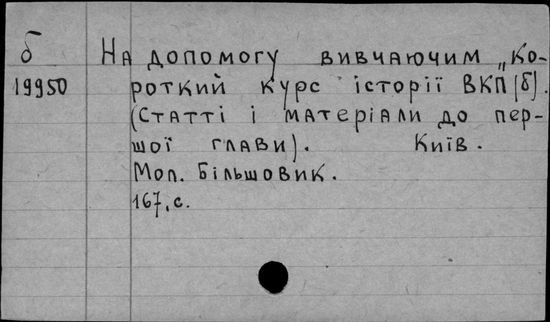 б На допомогу вивчаючим „Ко-
19950 роткий курс історії ВКП(б).
(Статті і матеріали до пер-
шої глави). Київ.
Мол. Більшовик.
167, с.